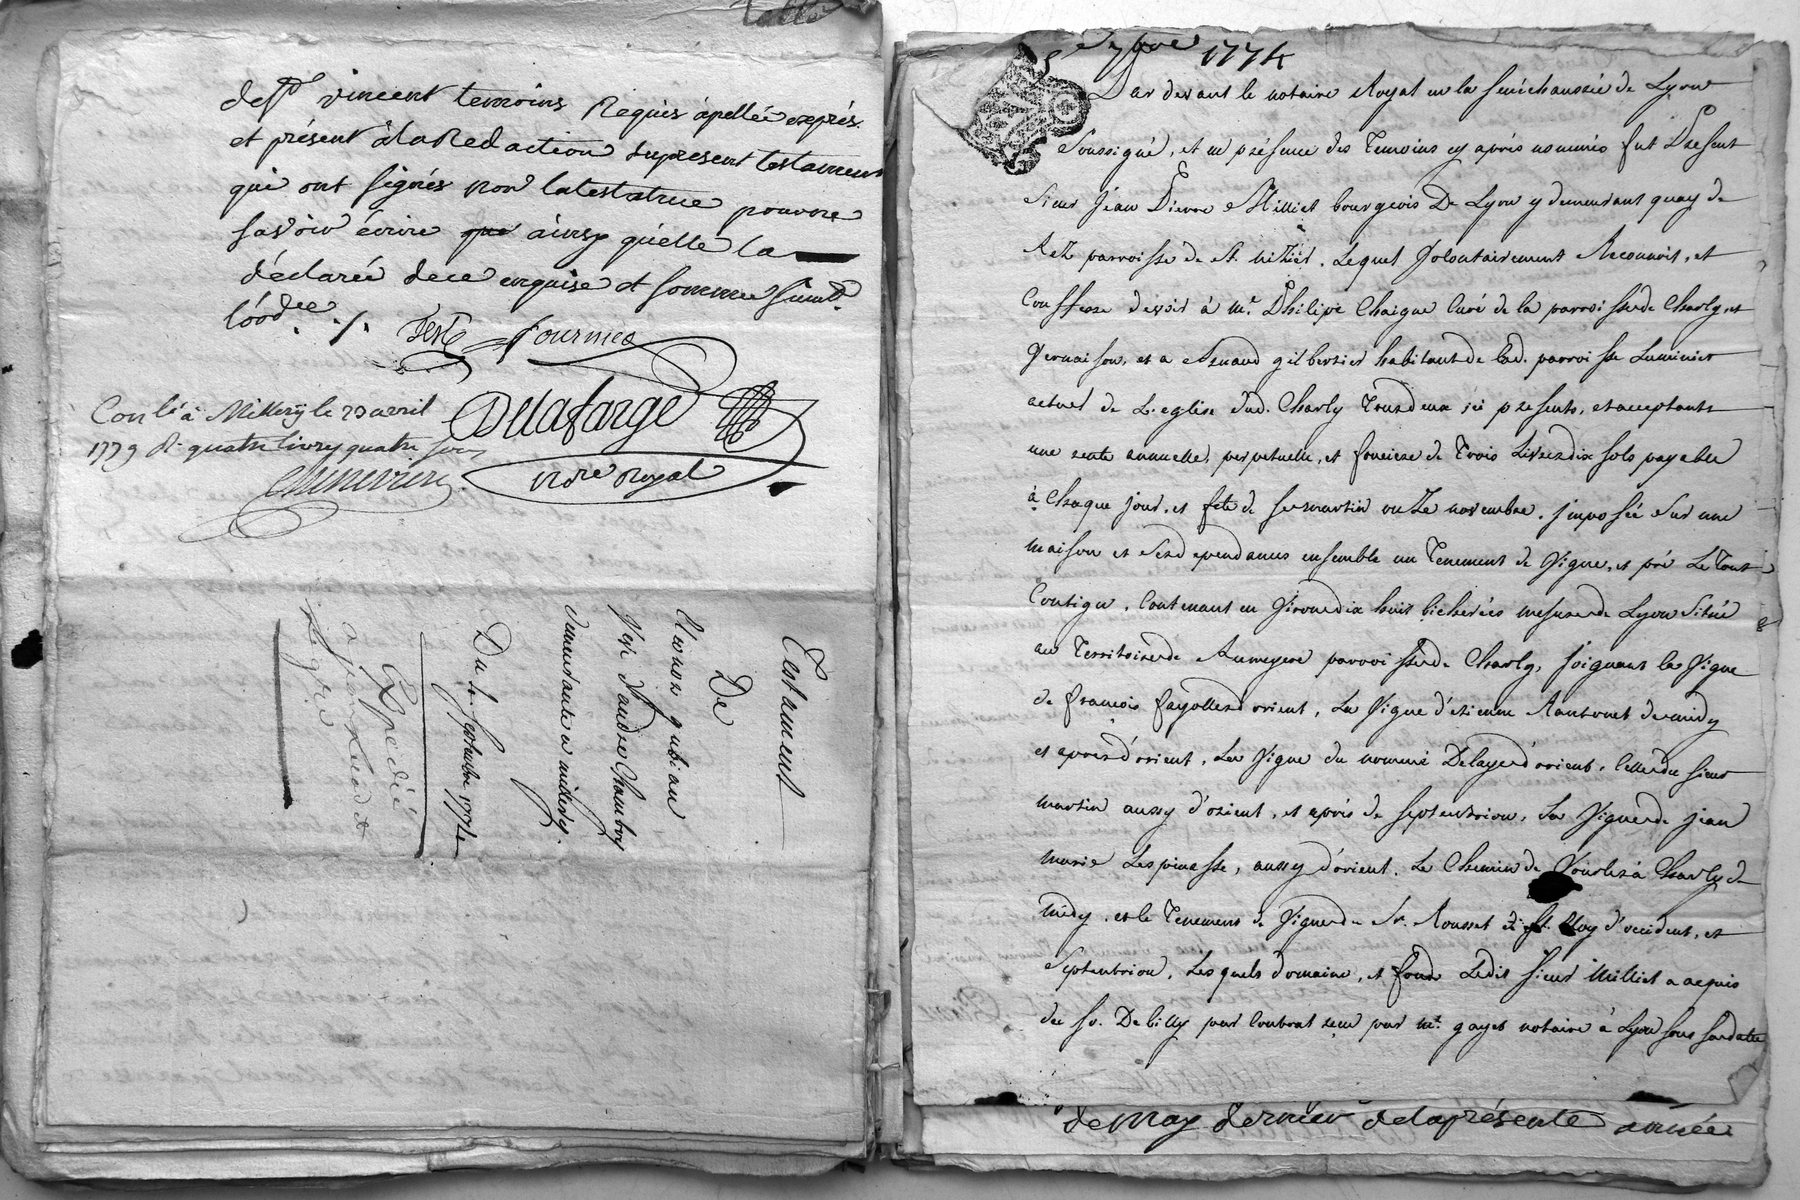 dess. vincent temoins Requis apellée exprés
et présent à la Redaction dupresent testament
qui ont signés non la testatrice pouvore
savoir écrire ainsy qu'elle la
déclarée dece enquise et sommée
Teste fournier
Dellafarge
notre Royal
Con lé à Millery le 23 avril
1779 R. quatre livres quatre sols
Chenevier
Testament
De
gubian
Veve d'andre Chambry
demeurante a millery
Du 1er. septembre 1774
Expedié
7bre 1774
Par devant le notaire Royal en la senéchaussée de Lyon
Soussigné, et en présence des Temoins cy après nommés fut Present
Sieur Jean Pierre Milliet bourgeois De Lyon y demeurant quay de
Retz parroisse de St. nizier. Lequel Volontairement Reconnoit, et
Confesse devoir à Mr. Philipe Chaigne Curé de la parroisse de Charly, et
Vernaison, et a gilbertier habitant de lad. parroisse Luminier
actuel de L'eglise dud. Charly Tous deux ici presents, et acceptants
une rente annuelle, perpetuelle, et fonciere de Trois Livres dix sols payable
à Chaque jour, et fete de st martin onze novembre. jmposée sur une
maison et ses dependances ensemble un Tenement de Vigne, et pré Le Tout
Contigu, Contenant en Viron dix huit bicherées mesure de Lyon Situé
au Territoire de parroisse de Charly, joignant la Vigne
de françois fayolle d'orient, La Vigne d'etienne Rantonet de midy
et aprés d'orient, La Vigne du nommé Delaye d'orient, Celle du sieur
martin aussy d'orient, et aprés de septentrion, La Vigne de jean
marie Lespinasse, aussy d'orient. Le Chemin de Vourles à Charly de
midy. et le Tenement de Vigne de Sr. Rousset de St. Eloy d'occident, et
Septentrion, Lesquels domaine, et fonds Ledit sieur Milliet a acquis
du Sr. Debilly par Contrat reçu par Me. gayet notaire à Lyon sous sa datte
de May dernier de la présente année